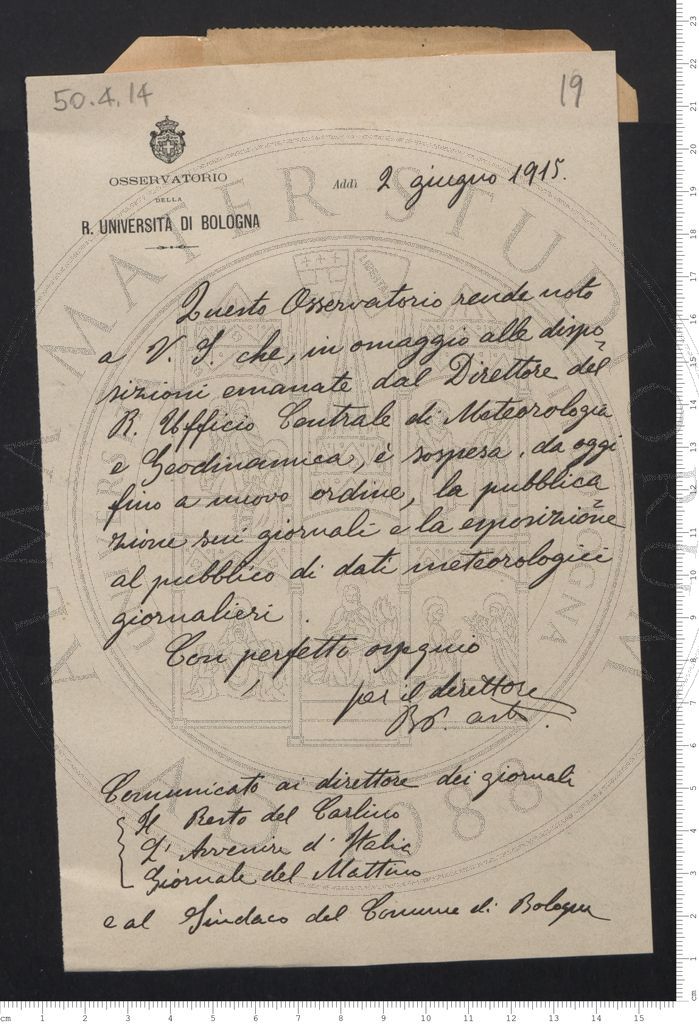 50.4.14
19
OSSERVATORIO
DELLA
R. UNIVERSITÀ DI BOLOGNA
Addì 2 giugno 1915.
Questo Osservatorio rende noto
a V. S. che, in omaggio alle dispo-
sizioni emanate dal Direttore del
R. Ufficio Centrale di Meteorologia
e Geodinamica, è sospesa, da oggi
fino a nuovo ordine, la pubblica-
zione sui giornali e la esposizione
al pubblico di dati meteorologici
giornalieri.
Con perfetto ossequio
per il direttore
Comunicato ai direttore dei giornali
Il Resto del Carlino
L'Avvenire d'Italia
Giornale del Mattino
e al Sindaco del Comune di Bologna
ALMA MATER STUDIORUM
A.D. 1088